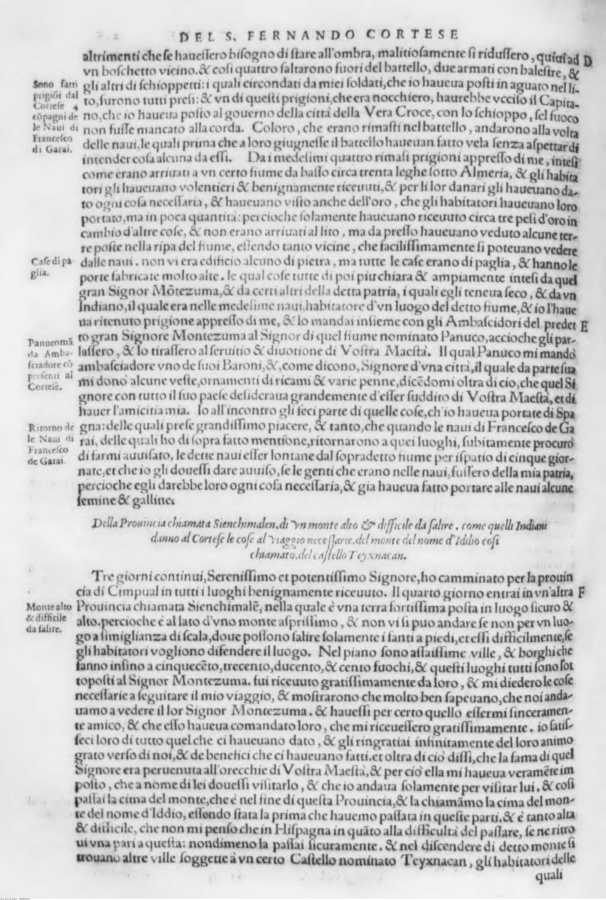 DEL S. FERNANDO CORTESE
altrimenti che se hauessero bisogno di stare all'ombra, malitiosamente si ridussero, quiui ad D
vn boschetto vicino. & cosi quattro saltarono fuori del battello, due armati con balestre, &
Sono fatti
prigiõi dal
Cortese 4
cõpagni de
le Naui di
Francesco
di Garai.
gli altri di schioppetti: i quali circondati da miei soldati, che io haueua posti in aguato nel li-
to, furono tutti presi: & vn di questi prigioni, che era nocchiero, haurebbe vcciso il Capita-
no, che io haueua posto al gouerno della città della Vera Croce, con lo schioppo, se'l fuoco
non fusse mancato alla corda. Coloro, che erano rimasti nel battello, andarono alla volta
delle naui, le quali prima che a loro giugnesse il battello haueuan fatto vela senza aspettar di
intender cosa alcuna da essi. Da i medesimi quattro rimasi prigioni appresso di me, intesi
come erano arriuati a vn certo fiume da basso circa trenta leghe sotto Almeria, & gli habita
tori gli haueuano volentieri & benignamente riceuuti, & per li lor danari gli haueuano da-
to ogni cosa necessaria, & haueuano visto anche dell'oro, che gli habitatori haueuano loro
portato, ma in poca quantità: percioche solamente haueuano riceuuto circa tre pesi d'oro in
cambio d'altre cose, & non erano arriuati al lito, ma da presso haueuano veduto alcune ter-
re poste nella ripa del fiume, essendo tanto vicine, che facilissimamente si poteuano vedere
Case di pa-
glia.
dalle naui. non vi era edificio alcuno di pietra, ma tutte le case erano di paglia, & hanno le
porte fabricate molto alte. le qual cose tutte di poi piu chiara & ampiamente intesi da quel
gran Signor Mõtezuma, & da certi altri della detta patria, i quali egli teneua seco, & da vn
Indiano, il quale era nelle medesime naui, habitatore d'vn luogo del detto fiume, & io l'haue
ua ritenuto prigione appresso di me, & lo mandai insieme con gli Ambasciadori del predet E
Panucomã
da Amba-
sciadore cõ
presenti al
Cortese.
to gran Signore Montezuma al Signor di quel fiume nominato Panuco, accioche gli par-
lassero, & lo tirassero al seruitio & diuotione di Vostra Maestà. Il qual Panuco mi mandò
ambasciadore vno de suoi Baroni, &, come dicono, Signore d'vna città, il quale da parte sua
mi donò alcune veste, ornamenti di ricami & varie penne, dicẽdomi oltra di cio, che quel Si
gnore con tutto il suo paese desideraua grandemente d'esser suddito di Vostra Maestà, et di
hauer l'amicitia mia. Io all'incontro gli feci parte di quelle cose, ch'io haueua portate di Spa
Ritorno de
le Naui di
Francesco
de Garai.
gna: delle quali prese grandissimo piacere, & tanto, che quando le naui di Francesco de Ga
rai, delle quali ho di sopra fatto mentione, ritornarono a quei luoghi, subitamente procurò
di farmi auuisato, le dette naui esser lontane dal sopradetto fiume per ispatio di cinque gior-
nate, et che io gli douessi dare auuiso, se le genti che erano nelle naui, fussero della mia patria,
percioche egli darebbe loro ogni cosa necessaria, & gia haueua fatto portare alle naui alcune
femine & galline.
Della Prouincia chiamata Sienchimalen, di vn monte alto & difficile da salire. come quelli Indiani
danno al Cortese le cose al viaggio necessarie. del monte del nome d'Iddio cosi
chiamato, del castello Teyxnacan.
Tre giorni continui, Serenissimo et potentissimo Signore, ho camminato per la prouin
cia di Cimpual in tutti i luoghi benignamente riceuuto. Il quarto giorno entrai in vn'altra F
Monte alto
& difficile
da salire.
Prouincia chiamata Sienchimalẽ, nella quale è vna terra fortissima posta in luogo sicuro &
alto. percioche è al lato d'vno monte asprissimo, & non vi si puo andare se non per vn luo-
go a simiglianza di scala, doue possono salire solamente i fanti a piedi, et essi difficilmente, se
gli habitatori vogliono difendere il luogo. Nel piano sono assaissime ville, & borghi che
fanno insino a cinquecẽto, trecento, ducento, & cento fuochi, & questi luoghi tutti sono sot
toposti al Signor Montezuma. fui riceuuto gratissimamente da loro, & mi diedero le cose
necessarie a seguitare il mio viaggio, & mostrarono che molto ben sapeuano, che noi anda-
uamo a vedere il lor Signor Montezuma. & hauessi per certo quello essermi sinceramen-
te amico, & che esso haueua comandato loro, che mi riceuessero gratissimamente. io satis-
feci loro di tutto quel che ci haueuano dato, & gli ringratiai infinitamente del loro animo
grato verso di noi, & de benefici che ci haueuano fatti. et oltra di ciò dissi, che la fama di quel
Signore era peruenuta all'orecchie di Vostra Maestà, & per ciò ella mi haueua veramẽte im
posto, che a nome di lei douessi visitarlo, & che io andaua solamente per visitar lui. & cosi
passai la cima del monte, che è nel fine di questa Prouincia, & la chiamãmo la cima del mon-
te del nome d'Iddio, essendo stata la prima che hauemo passata in queste parti. & è tanto alta
& difficile, che non mi penso che in Hispagna in quãto alla difficultà del passare, se ne ritro
ui vna pari a questa: nondimeno la passai sicuramente. & nel discendere di detto monte si
trouano altre ville soggette a vn certo Castello nominato Teyxnacan, gli habitatori delle
quali